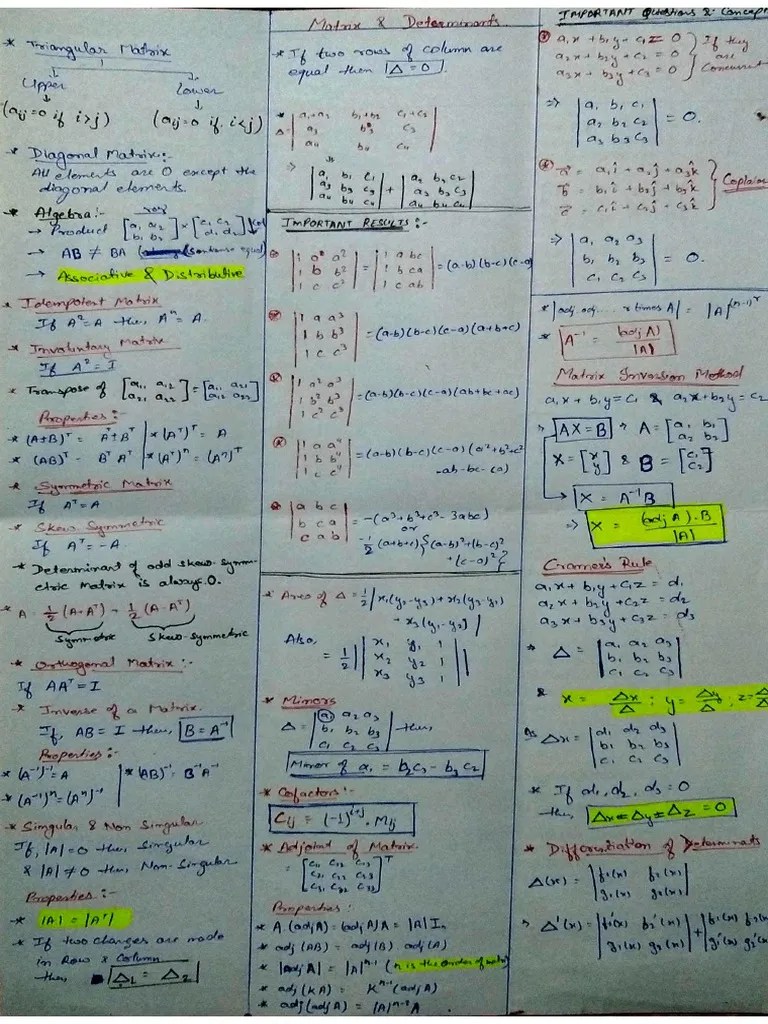 * Triangular Matrix
Upper Lower
(aij=0 if i>j) (aij=0 if i<j)
* Diagonal Matrix:-
All elements are 0 except the
diagonal elements.
* Algebra:-
→ Product [a1 a2 / b1 b2] × [c1 c2 / d1 d2]
→ AB ≠ BA
→ Associative & Distributive
* Idempotent Matrix
If A²=A then, Aⁿ=A.
* Involuntary Matrix
If A²=I
* Transpose of [a11 a12 / a21 a22] = [a11 a21 / a12 a22]
Properties:-
* (A±B)ᵀ = Aᵀ±Bᵀ * (Aᵀ)ᵀ = A
* (AB)ᵀ = BᵀAᵀ * (Aᵀ)ⁿ = (Aⁿ)ᵀ
* Symmetric Matrix
If Aᵀ=A
* Skew Symmetric
If Aᵀ=-A
* Determinant of odd skew-symm-
etric Matrix is always 0.
* A = 1/2 (A+Aᵀ) + 1/2 (A-Aᵀ)
symmetric skew-symmetric
* Orthogonal Matrix:-
If AAᵀ=I
* Inverse of a Matrix.
If, AB=I then, B=A⁻¹
Properties:-
* (A⁻¹)⁻¹=A * (AB)⁻¹=B⁻¹A⁻¹
* (A⁻¹)ⁿ=(Aⁿ)⁻¹
* Singular & Non Singular
If, |A|=0 then, Singular
& |A|≠0 then, Non-Singular
Properties:-
* |A| = |Aᵀ|
* If two changes are made
in Row & Column
then, Δ1 = Δ2
Matrix & Determinants
* If two rows of column are
equal then Δ=0
* Δ = |a1+a2 b1+b2 c1+c2 / a3 b3 c3 / a4 b4 c4|
⇒ |a1 b1 c1 / a3 b3 c3 / a4 b4 c4| + |a2 b2 c2 / a3 b3 c3 / a4 b4 c4|
IMPORTANT RESULTS:-
|1 a a² / 1 b b² / 1 c c²| = |1 a bc / 1 b ca / 1 c ab| = (a-b)(b-c)(c-a)
|1 a a³ / 1 b b³ / 1 c c³| = (a-b)(b-c)(c-a)(a+b+c)
|1 a² a³ / 1 b² b³ / 1 c² c³| = (a-b)(b-c)(c-a)(ab+bc+ac)
|1 a a⁴ / 1 b b⁴ / 1 c c⁴| = (a-b)(b-c)(c-a)(a²+b²+c²
-ab-bc-ca)
|a b c / b c a / c a b| = -(a³+b³+c³-3abc)
or
-1/2 (a+b+c){(a-b)²+(b-c)²
+(c-a)²}
* Area of Δ = 1/2 |x1(y2-y3)+x2(y3-y1)
+x3(y1-y2)|
Also,
= 1/2 |x1 y1 1 / x2 y2 1 / x3 y3 1|
* Minors
Δ = |a1 a2 a3 / b1 b2 b3 / c1 c2 c3| then,
Minor of a1 = b2c3 - b3c2
* Cofactors:-
Cij = (-1)^i+j . Mij
* Adjoint of Matrix.
= [c11 c12 c13 / c21 c22 c23 / c31 c32 c33]ᵀ
Properties:
* A.(adjA)=(adjA)A=|A|In
* adj(AB) = adj(B) adj(A)
* |adjA| = |A|ⁿ⁻¹ (n is the order of
* adj(KA) = Kⁿ⁻¹(adjA)
* adj(adjA) = |A|ⁿ⁻²A
IMPORTANT Questions & Concept
a1x+b1y+c1z=0
a2x+b2y+c2=0
a3x+b3y+c3=0
If they
are
Concurrent
⇒ |a1 b1 c1 / a2 b2 c2 / a3 b3 c3| = 0.
a = a1i+a2j+a3k
b = b1i+b2j+b3k
c = c1i+c2j+c3k
Coplanar
⇒ |a1 a2 a3 / b1 b2 b3 / c1 c2 c3| = 0.
* |adj.adj.... r times A| = |A|^(n-1)^r
* A⁻¹ = (adjA)/|A|
Matrix Inversion Method
a1x+b1y=c1 & a2x+b2y=c2
⇒ AX=B ⇒ A=[a1 b1 / a2 b2]
X=[x / y] & B=[c1 / c2]
⇒ X = A⁻¹B
⇒ X = (adj A).B/|A|
Cramer's Rule
a1x+b1y+c1z=d1
a2x+b2y+c2z=d2
a3x+b3y+c3z=d3
* Δ = |a1 a2 a3 / b1 b2 b3 / c1 c2 c3|
& x = Δx/Δ ; y = Δy/Δ ; z=
As Δx = |d1 d2 d3 / b1 b2 b3 / c1 c2 c3|
* If d1, d2, d3 = 0
then, Δx=Δy=Δz=0
* Differentiation of Determinants
Δ(x) = |f1(x) f2(x) / g1(x) g2(x)|
⇒ Δ'(x) = |f1'(x) f2'(x) / g1(x) g2(x)| + |f1(x) f2(x) / g1'(x) g2'(x)